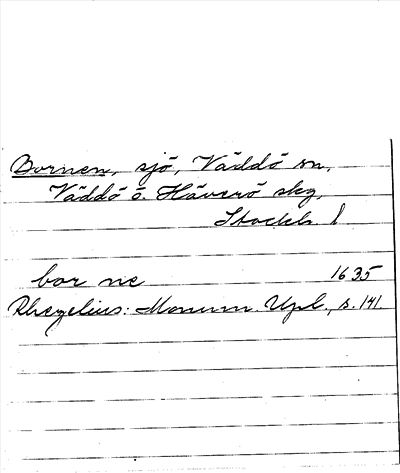 Bornen, sjö, Väddö sn,
Väddö o. Häverö skg,
Stockh. l
bor ne 1635
Rhezelius: Monum. Upl., s. 141.